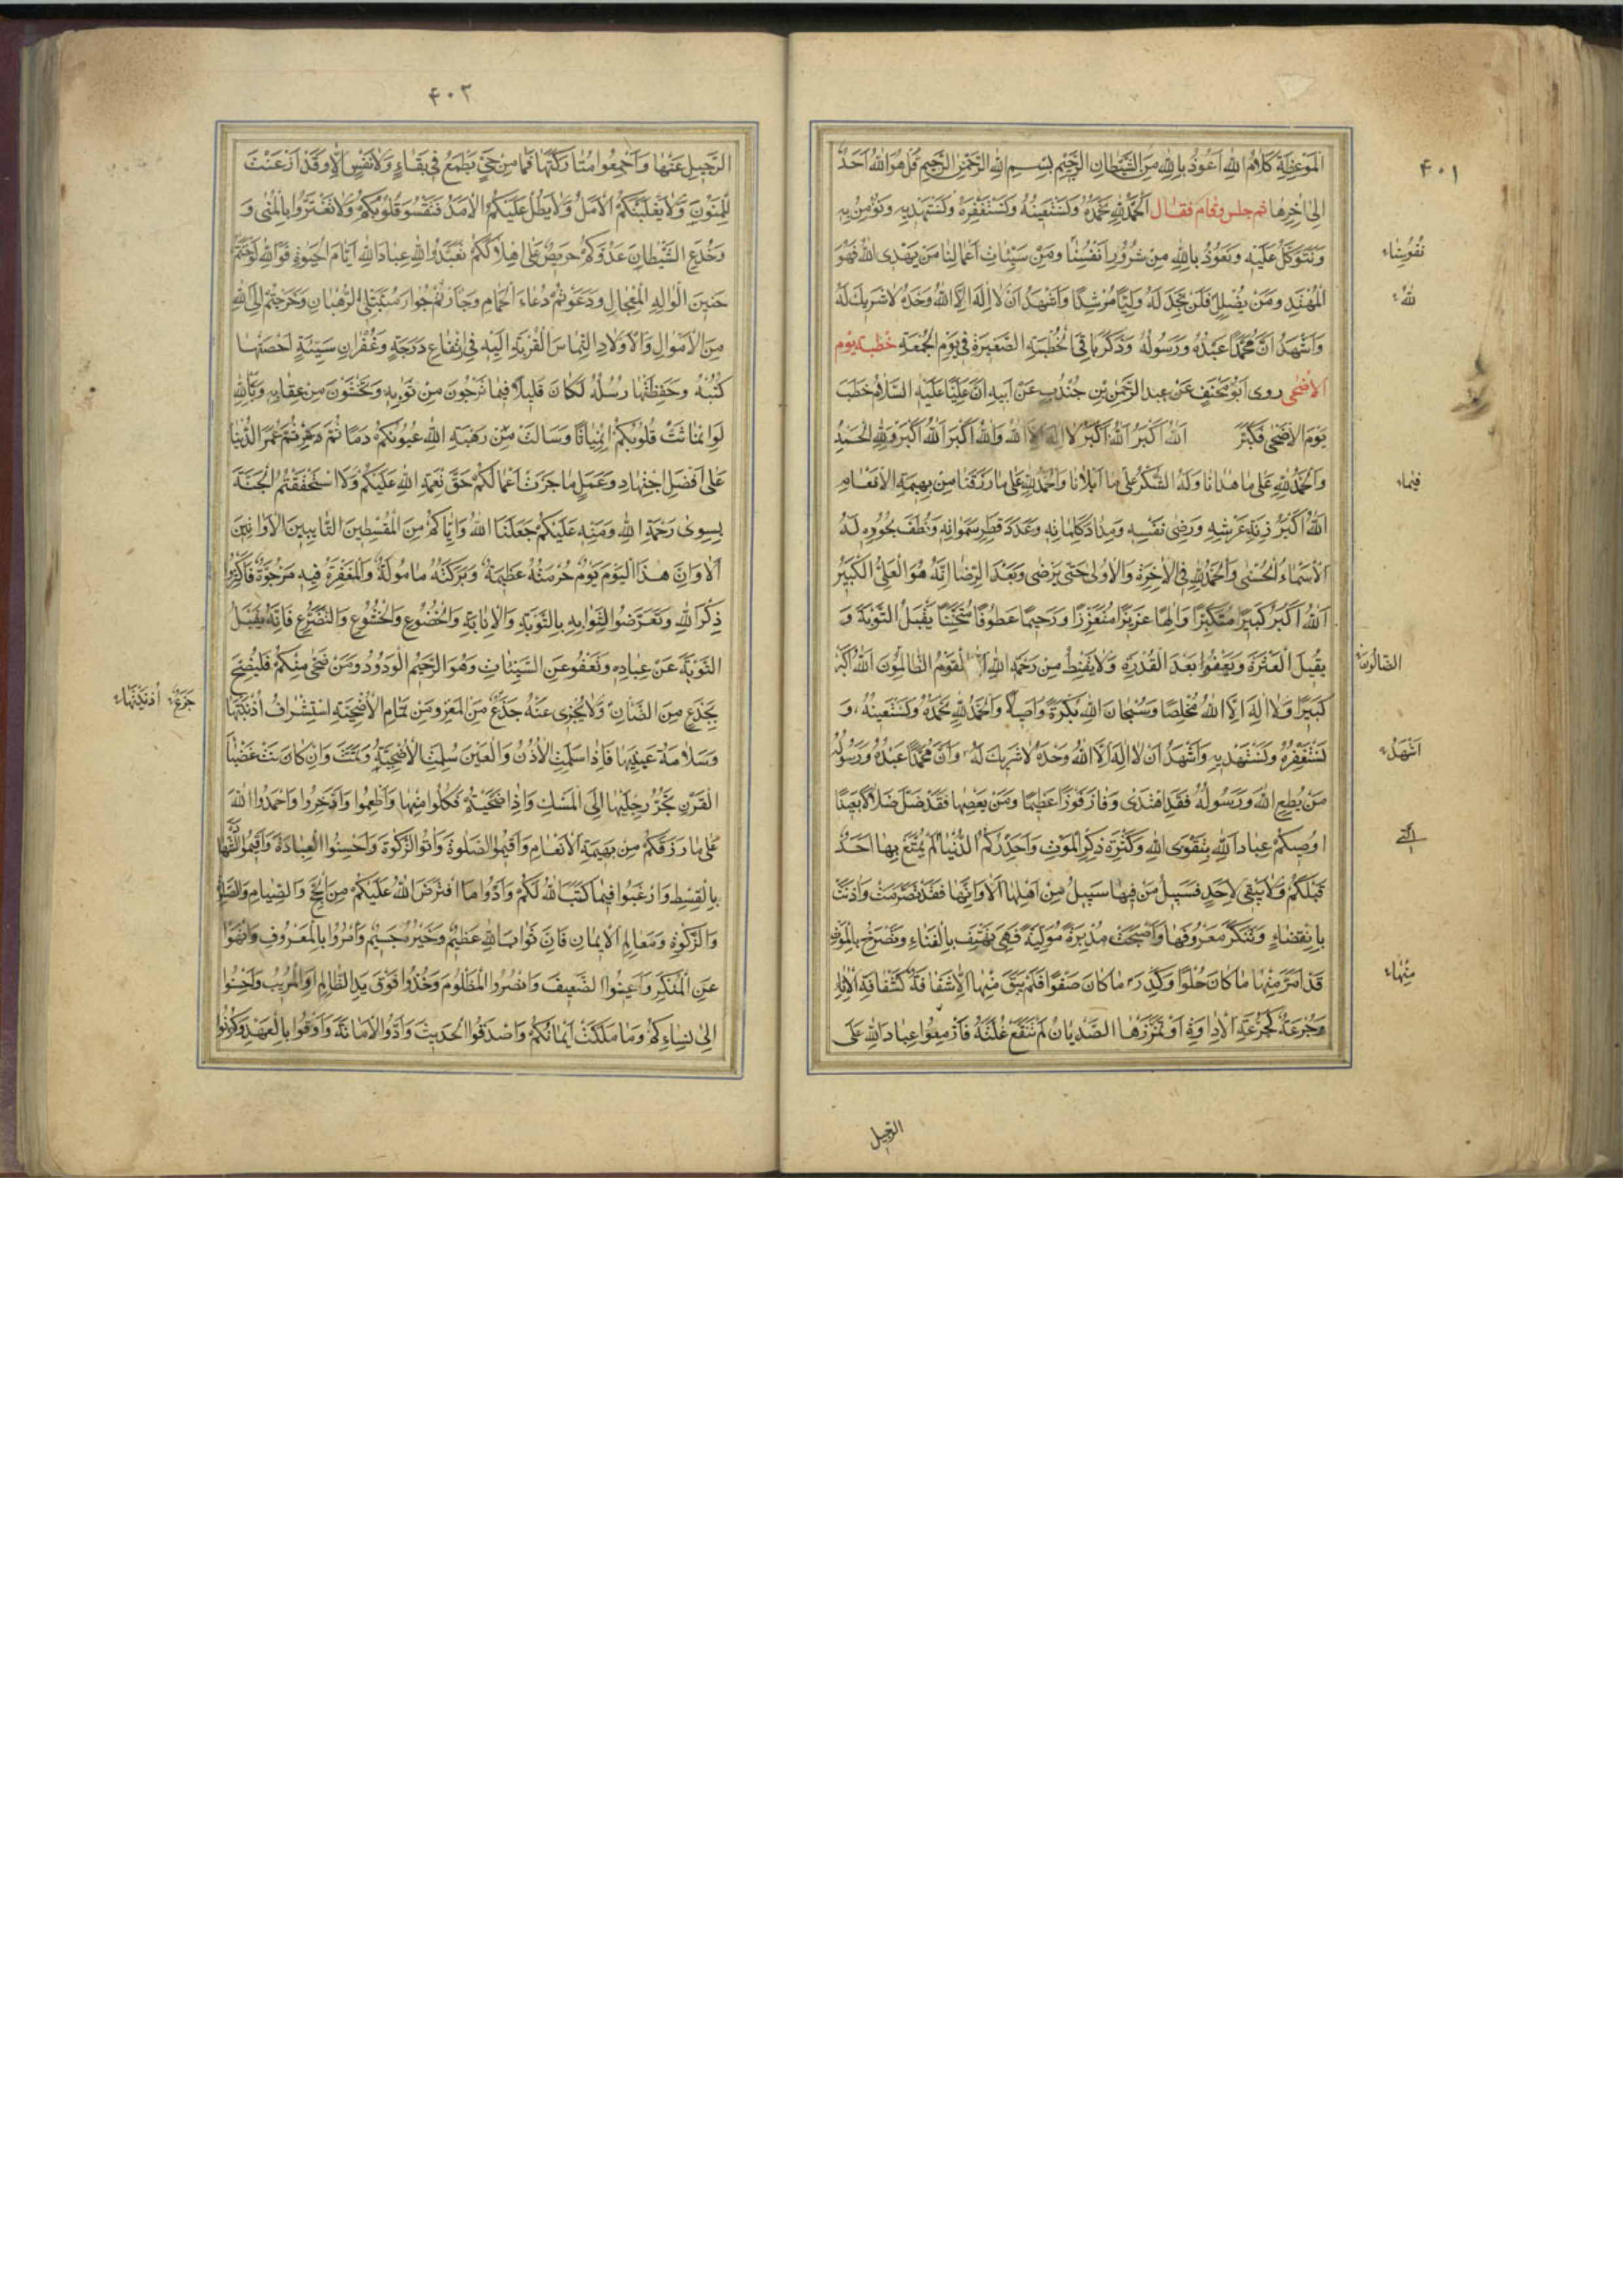 ۴۰۱
اَلْمَوْعِظَةِ كَلَامُ اللهِ اَعُوذُ بِاللهِ مِنَ الشَّيْطَانِ الرَّجِيمِ بِسْمِ اللهِ الرَّحْمٰنِ الرَّحِيمِ قُلْ هُوَ اللهُ اَحَدٌ
اِلىٰ اٰخِرِهَا ثم جلس وقام فقال اَلْحَمْدُ لِلهِ نَحْمَدُهُ وَنَسْتَعِينُهُ وَنَسْتَغْفِرُهُ وَنَسْتَهْدِيهِ وَنُؤْمِنُ بِهِ
وَنَتَوَكَّلُ عَلَيْهِ وَنَعُوذُ بِاللهِ مِنْ شُرُورِ اَنْفُسِنَا وَمِنْ سَيِّئَاتِ اَعْمَالِنَا مَنْ يَهْدِى اللهُ فَهُوَ
الْمُهْتَدِ وَمَنْ يُضْلِلْ فَلَنْ تَجِدَ لَهُ وَلِيًّا مُرْشِدًا وَاَشْهَدُ اَنْ لَا اِلٰهَ اِلَّا اللهُ وَحْدَهُ لَا شَرِيكَ لَهُ
وَاَشْهَدُ اَنَّ مُحَمَّدًا عَبْدُهُ وَرَسُولُهُ وَذَكَرَ بَاقِىَ الْخُطْبَةِ الصَّغِيرَةِ فِى يَوْمِ الْجُمُعَةِ خطبة يوم
الاضحى روى اَبُو مِخْنَفٍ عَنْ عبد الرَّحْمٰنِ بْنِ جُنْدُبٍ عَنْ اَبِيهِ اَنَّ عَلِيًّا عَلَيْهِ السَّلَامُ خَطَبَ
يَوْمَ الْاَضْحٰى فَكَبَّرَ اَللهُ اَكْبَرُ اَللهُ اَكْبَرُ لَا اِلٰهَ اِلَّا اللهُ وَاللهُ اَكْبَرُ اَللهُ اَكْبَرُ وَلِلهِ الْحَمْدُ
وَالْحَمْدُ لِلهِ عَلىٰ مَا هَدَانَا وَلَهُ الشُّكْرُ عَلىٰ مَا اَبْلَانَا وَالْحَمْدُ لِلهِ عَلىٰ مَا رَزَقَنَا مِنْ بَهِيمَةِ الْاَنْعَامِ
اَللهُ اَكْبَرُ زِنَةَ عَرْشِهِ وَرِضٰى نَفْسِهِ وَمِدَادَ كَلِمَاتِهِ وَعَدَدَ قَطْرِ سَمٰوَاتِهِ وَنُطَفِ بُحُورِهِ لَهُ
الْاَسْمَاءُ الْحُسْنٰى وَالْحَمْدُ لِلهِ فِى الْاٰخِرَةِ وَالْاُولىٰ حَتّىٰ يَرْضٰى وَبَعْدَ الرِّضَا اِنَّهُ هُوَ الْعَلِىُّ الْكَبِيرُ
اَللهُ اَكْبَرُ كَبِيرًا مُتَكَبِّرًا وَاِلٰهًا عَزِيزًا مُتَعَزِّزًا وَرَحِيمًا عَطُوفًا مُتَحَنِّنًا يَقْبَلُ التَّوْبَةَ وَ
يَقْبَلُ الْعَثْرَةَ وَيَعْفُوا بَعْدَ الْقُدْرَةِ وَلَا يَقْنَطُ مِنْ رَحْمَةِ اللهِ اِلَّا الْقَوْمُ الظَّالِمُونَ اَللهُ اَكْبَرُ
كَبِيرًا وَلَا اِلٰهَ اِلَّا اللهُ مُخْلِصًا وَسُبْحَانَ اللهِ بُكْرَةً وَاَصِيلًا وَالْحَمْدُ لِلهِ نَحْمَدُهُ وَنَسْتَعِينُهُ وَ
نَسْتَغْفِرُهُ وَنَسْتَهْدِيهِ وَاَشْهَدُ اَنْ لَا اِلٰهَ اِلَّا اللهُ وَحْدَهُ لَا شَرِيكَ لَهُ وَاَنَّ مُحَمَّدًا عَبْدُهُ وَرَسُولُهُ
مَنْ يُطِعِ اللهَ وَرَسُولَهُ فَقَدِ اهْتَدٰى وَفَازَ فَوْزًا عَظِيمًا وَمَنْ يَعْصِهِمَا فَقَدْ ضَلَّ ضَلَالًا بَعِيدًا
اُوصِيكُمْ عِبَادَ اللهِ بِتَقْوَى اللهِ وَكَثْرَةِ ذِكْرِ الْمَوْتِ وَاُحَذِّرُكُمُ الدُّنْيَا لَمْ يُمَتَّعْ بِهَا اَحَدٌ
قَبْلَكُمْ وَلَا يَبْقٰى لِاَحَدٍ فَسَبِيلُ مَنْ فِيهَا سَبِيلُ مِنْ اَهْلِهَا اَلَا وَاِنَّهَا فَقَدْ تَصَرَّمَتْ وَاٰذَنَتْ
بِانْقِضَاءٍ وَتَنَكَّرَ مَعْرُوفُهَا وَاَصْبَحَتْ مُدْبِرَةً مُوَلِّيَةً فَهِىَ تَهْتِفُ بِالْفَنَاءِ وَتَصْرُخُ بِالْمَوْتِ
قَدْ اَمَرَّ مِنْهَا مَا كَانَ حُلْوًا وَكَدِرَ مَا كَانَ صَفْوًا فَلَمْ يَبْقَ مِنْهَا اِلَّا شُفَافَةٌ كَشُفَافَةِ الْاِنَاءِ
وَجُرْعَةٌ كَجُرْعَةِ الْاِدَاوَةِ لَوْ تَمَزَّزَهَا الصَّدْيَانُ لَمْ تَنْقَعْ غُلَّتَهُ فَاَزْمِعُوا عِبَادَ اللهِ عَلَى
نُفُوسِنَا
لله
فيما
الضَّالُّونَ
اَشْهَدُ
مِنْهَا
الرحيل
۴۰۲
الرَّحِيلِ عَنْهَا وَاَجْمِعُوا مُتَارَكَتَهَا فَمَا مِنْ حَىٍّ يَطْمَعُ فِى بَقَاءٍ وَلَا نَفْسٍ اِلَّا وَقَدْ اَذْعَنَتْ
لِلْمَنُونِ وَلَا يَغْلِبَنَّكُمُ الْاَمَلُ وَلَا يَطُلْ عَلَيْكُمُ الْاَمَدُ فَتَقْسُوَ قُلُوبُكُمْ وَلَا تَغْتَرُّوا بِالْمُنٰى وَ
وَخُدَعِ الشَّيْطَانِ عَدُوِّكُمْ حَرِيصٌ عَلىٰ اِهْلَاكِكُمْ تَعَبَّدُوا لِلهِ عِبَادَ اللهِ اَيَّامَ الْحَيٰوةِ فَوَاللهِ لَوْ حَنَنْتُمْ
حَنِينَ الْوَالِهِ الْمِعْجَالِ وَدَعَوْتُمْ دُعَاءَ الْحَمَامِ وَجَاَرْتُمْ جُوَارَ مُتَبَتِّلِى الرُّهْبَانِ وَخَرَجْتُمْ اِلَى اللهِ
مِنَ الْاَمْوَالِ وَالْاَوْلَادِ الْتِمَاسَ الْقُرْبَةِ اِلَيْهِ فِى ارْتِفَاعِ دَرَجَةٍ وَغُفْرَانِ سَيِّئَةٍ اَحْصَتْهَا
كُتُبُهُ وَحَفِظَتْهَا رُسُلُهُ لَكَانَ قَلِيلًا فِيمَا تَرْجُونَ مِنْ ثَوَابِهِ وَتَخْشَوْنَ مِنْ عِقَابِهِ وَتَاللهِ
لَوِ انْمَاثَتْ قُلُوبُكُمُ انْمِيَاثًا وَسَالَتْ مِنْ رَهْبَةِ اللهِ عُيُونُكُمْ دَمًا ثُمَّ عُمِّرْتُمْ عُمُرَ الدُّنْيَا
عَلىٰ اَفْضَلِ اجْتِهَادٍ وَعَمَلٍ مَا جَزَتْ اَعْمَالُكُمْ حَقَّ نِعْمَةِ اللهِ عَلَيْكُمْ وَلَا اسْتَحْقَقْتُمُ الْجَنَّةَ
بِسِوىٰ رَحْمَةِ اللهِ وَمَنِّهِ عَلَيْكُمْ جَعَلَنَا اللهُ وَاِيَّاكُمْ مِنَ الْمُقْسِطِينَ التَّايِبِينَ الْاَوَّابِينَ
اَلَا وَاِنَّ هٰذَا الْيَوْمَ يَوْمٌ حُرْمَتُهُ عَظِيمَةٌ وَبَرَكَتُهُ مَامُولَةٌ وَالْمَغْفِرَةُ فِيهِ مَرْجُوَّةٌ فَاَكْثِرُوا
ذِكْرَ اللهِ وَتَعَرَّضُوا لِثَوَابِهِ بِالتَّوْبَةِ وَالْاِنَابَةِ وَالْخُضُوعِ وَالْخُشُوعِ وَالتَّضَرُّعِ فَاِنَّهُ يَقْبَلُ
التَّوْبَةَ عَنْ عِبَادِهِ وَيَعْفُو عَنِ السَّيِّئَاتِ وَهُوَ الرَّحِيمُ الْوَدُودُ وَمَنْ ضَحّٰى مِنْكُمْ فَلْيُضَحِّ
بِجَذَعٍ مِنَ الضَّاْنِ وَلَا يُجْزِى عَنْهُ جَذَعٌ مِنَ الْمَعْزِ وَمِنْ تَمَامِ الْاُضْحِيَّةِ اسْتِشْرَافُ اُذُنِهَا
وَسَلَامَةُ عَيْنِهَا فَاِذَا سَلِمَتِ الْاُذُنُ وَالْعَيْنُ سَلِمَتِ الْاُضْحِيَّةُ وَتَمَّتْ وَاِنْ كَانَتْ عَضْبَاءَ
الْقَرْنِ تَجُرُّ رِجْلَيْهَا اِلَى الْمَنْسَكِ وَاِذَا ضَحَّيْتُمْ فَكُلُوا مِنْهَا وَاَطْعِمُوا وَادَّخِرُوا وَاحْمَدُوا اللهَ
عَلىٰ مَا رَزَقَكُمْ مِنْ بَهِيمَةِ الْاَنْعَامِ وَاَقِيمُوا الصَّلٰوةَ وَاٰتُوا الزَّكٰوةَ وَاَحْسِنُوا الْعِبَادَةَ وَاَقِيمُوا الشَّهَادَةَ
بِالْقِسْطِ وَارْغَبُوا فِيمَا كَتَبَ اللهُ لَكُمْ وَاَدُّوا مَا افْتَرَضَ اللهُ عَلَيْكُمْ مِنَ الْحَجِّ وَالصِّيَامِ وَالصَّلٰوةِ
وَالزَّكٰوةِ وَمَعَالِمِ الْاِيمَانِ فَاِنَّ ثَوَابَ اللهِ عَظِيمٌ وَخَيْرُهُ جَسِيمٌ وَاْمُرُوا بِالْمَعْرُوفِ وَانْهَوْا
عَنِ الْمُنْكَرِ وَاَعِينُوا الضَّعِيفَ وَانْصُرُوا الْمَظْلُومَ وَخُذُوا فَوْقَ يَدِ الظَّالِمِ اَوِ الْمُرِيبِ وَاَحْسِنُوا
اِلىٰ نِسَاءِكُمْ وَمَا مَلَكَتْ اَيْمَانُكُمْ وَاصْدُقُوا الْحَدِيثَ وَاَدُّوا الْاَمَانَةَ وَاَوْفُوا بِالْعَهْدِ وَكُونُوا